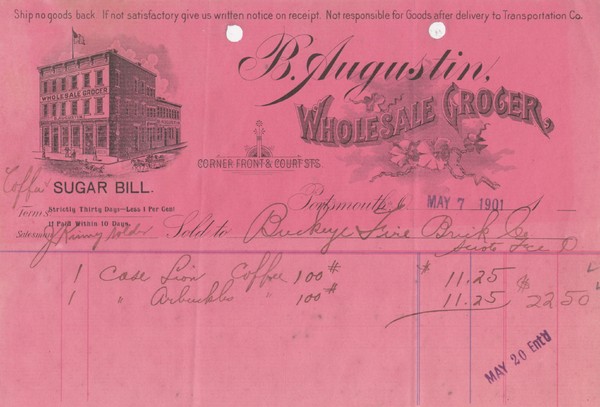 Ship no goods back. If not satisfactory give us written notice on receipt. Not responsible for Goods after delivery to Transportation Co.
B. Augustin,
WHOLESALE GROCER,
WHOLESALE GROCER
CORNER FRONT & COURT STS.
Coffee
SUGAR BILL.
Portsmouth, O. MAY 7 1901 1
Terms: Strictly Thirty Days—Less 1 Per Cent
If Paid Within 10 Days.
Salesman
Sold to Buckeye Fire Brick Co
Scioto Fce O
1 Case Lion Coffee 100# $ 11.25
1 " Arbuckles " 100# 11.25 $ 22 50
MAY 20 Ent'd